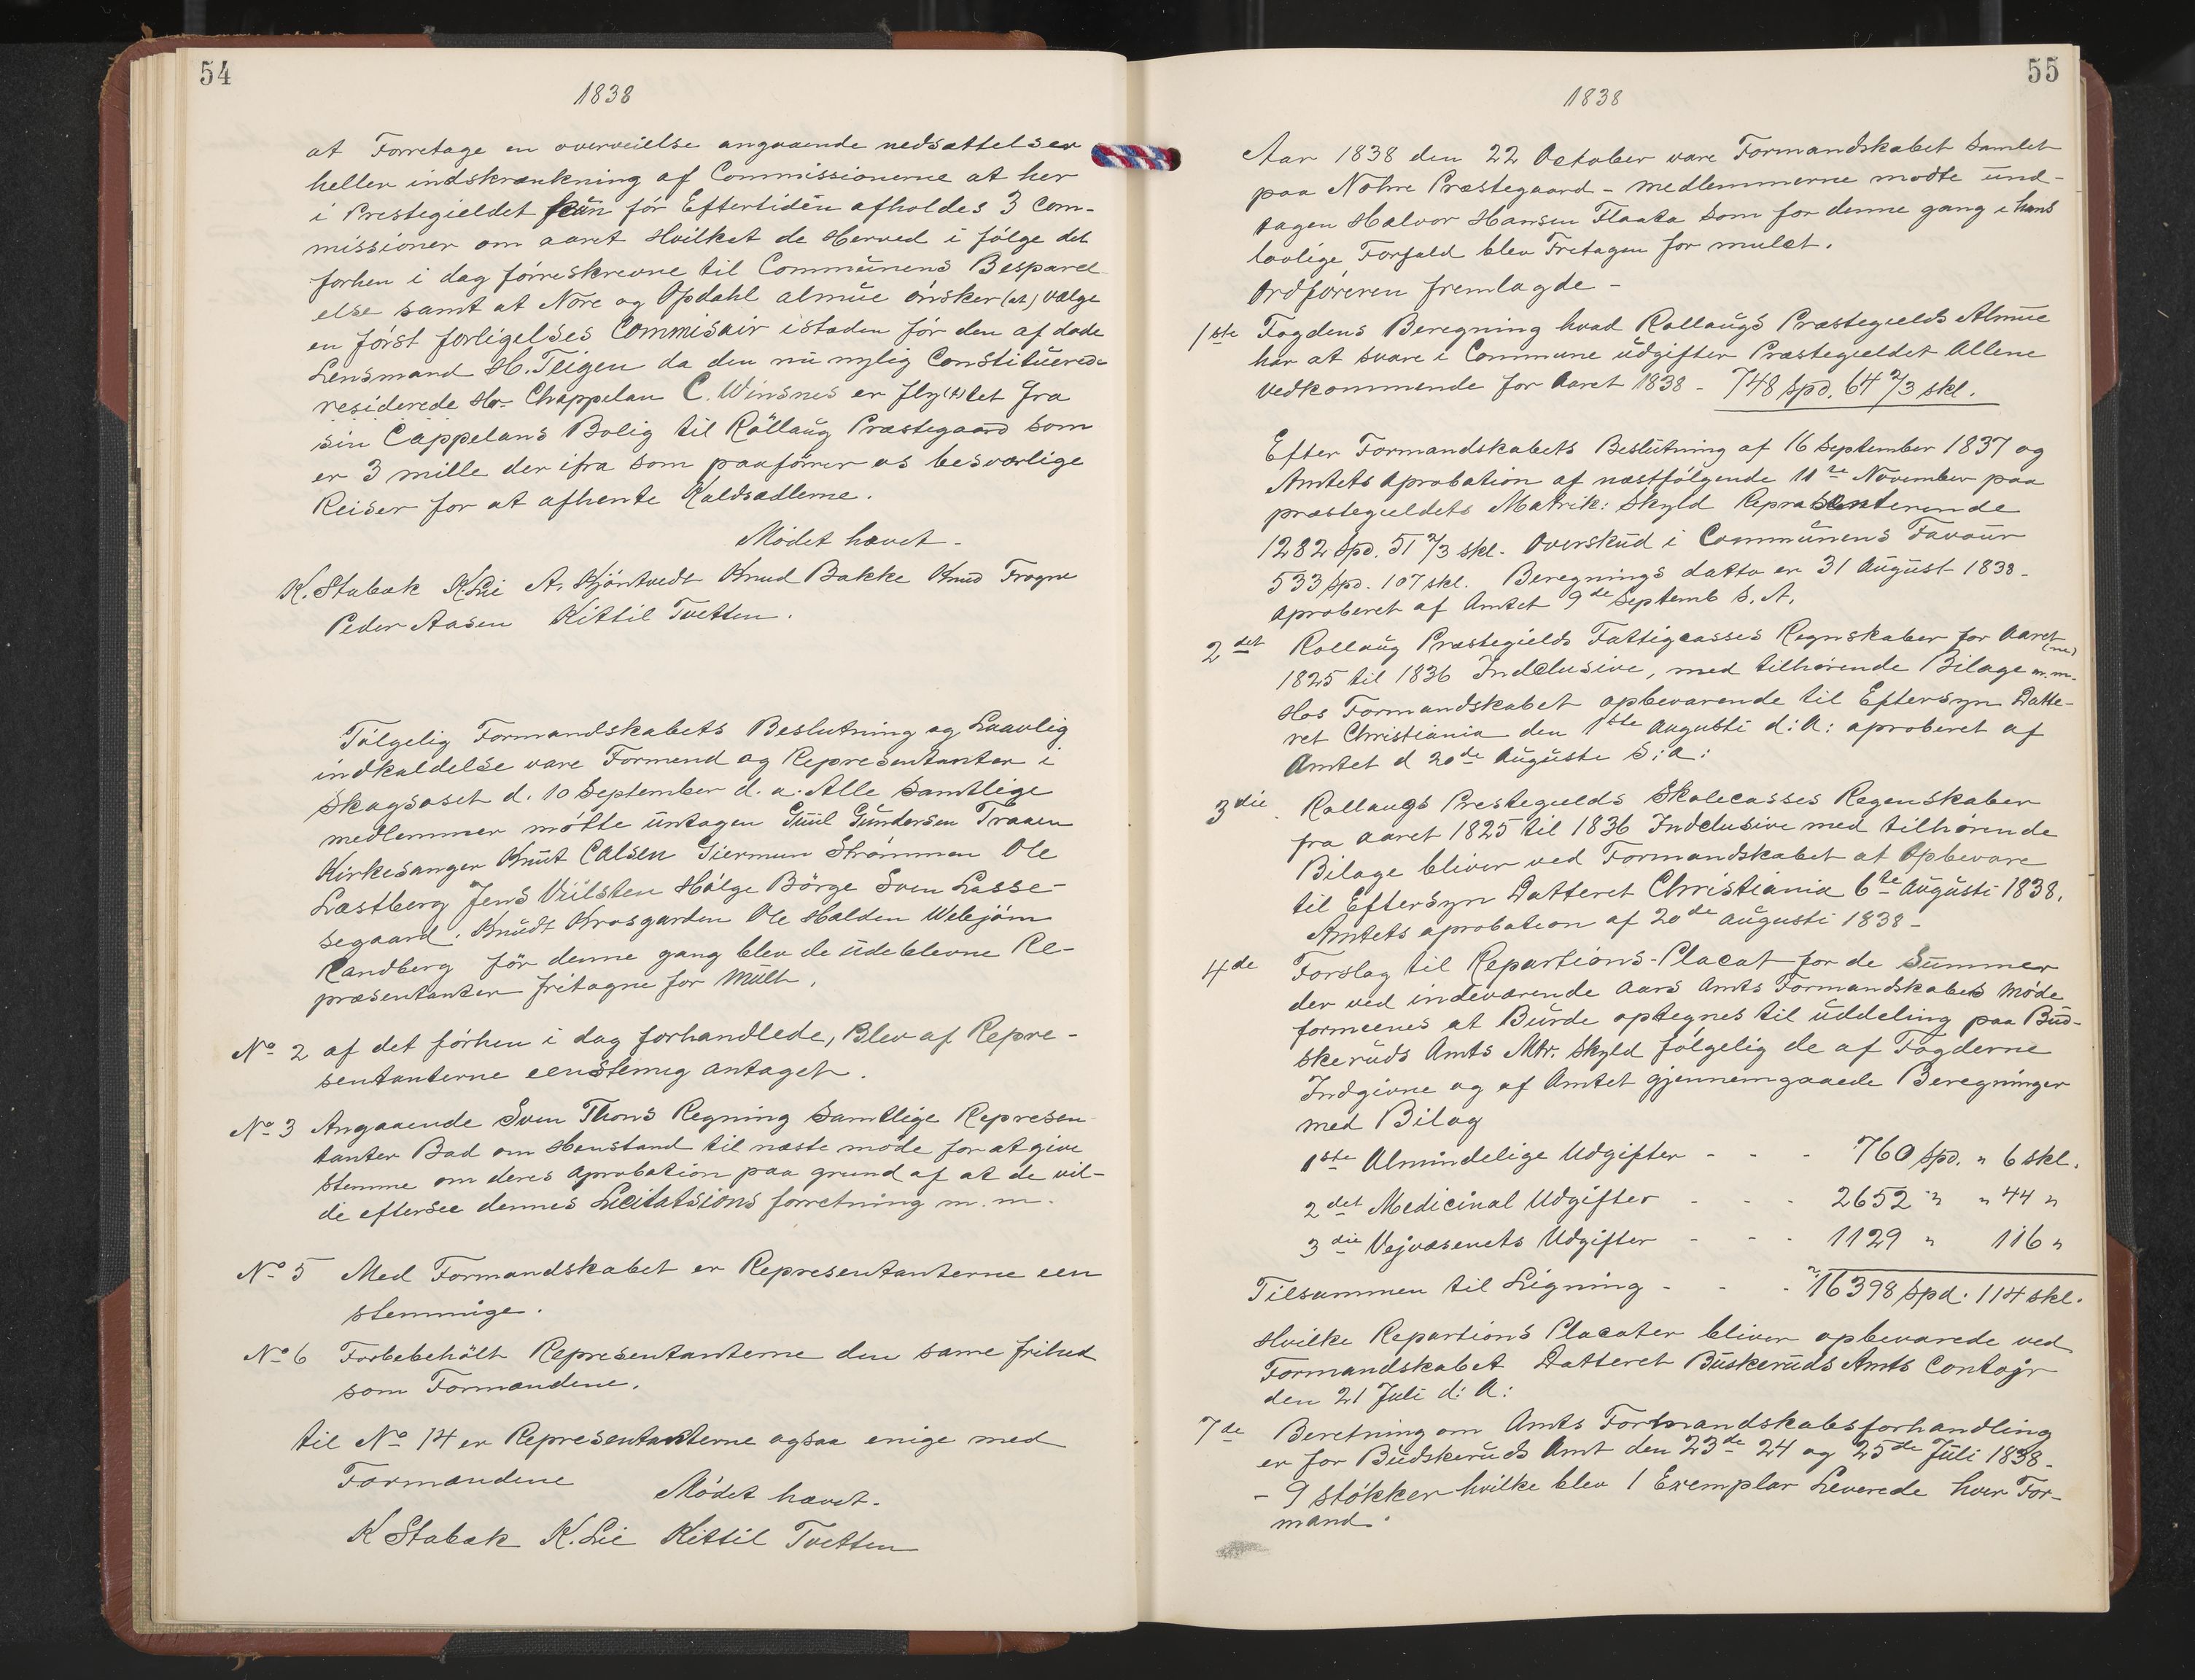 54
1838
at Forretage en overveielse angaaende nedsættelser
heller indskrænkning af Commissionerne at her
i Prestegieldet kün før Eftertiden afholdes 3 Com-
missioner om aaret Hvilket de Herved i følge det
forhen i dag førreskrevne til Commünens Bespared
else samt at Nore og Opdahl almüe ønsker (at) vælge
en først forligelses Commisair istaden før den af døde
Lensmand H. Teigen da den nü nylig Constitüered-
residerede Hr. Chappelan C. Winsnes er fly(t)tet fra
sin Cappelans Bolig til Røllaug Præstegaard som
er 3 mille der ifra som paafører os besværlige
Reiser for at afhente Kaldsedlerne.
Mødet hævet -
K. Stabæk K. Lie A. Kjøntvedt Knud Bakke Knud Frogne
Peder Aasen Kittil Tvetten.
Følgelig Formandskabets Beslutning og Laavlig
indkaldelse vare Formend og Representanter i
Skogsøset d. 10 September d. a. Alle samtlige
medlemmer møtte üntagen Guül Gündersen Traaen
Kirkesanger Knüt Calsen Giermun Strømmen Ole
Læstberg Jens Viilsten Hølge Børge Sven Lasse-
segaard. Knüdt Krosgarden Ole Halden Webjørn
Randberg før denne gang blev de üdeblevne Re-
præsentanter fritagne for Mült.
No 2 af det førhen i dag forhandlede, Blev af Repre-
sentanterne eenstemig antaget.
No 3 Angaaende Sven Thons Regning Samtlige Represen
tanter Bad om Henstand til næste møde for at give
stemme om deres Aprobation paa grund af at de vil-
de eftersee dennes Licitatsions forretning m. m.
No 5 Med Formandskabet er Representanterne een
stemmige.
No 6 Forbebehølt Representanterne den same frihed
som Formændene.
til No 14 er Representanterne ogsaa enige med
Formændene
Mødet hævet.
K Stabæk K. Lie Kittil Tvetten
55
1838
Aar 1838 den 22 October vare Formandskabet Samlet
paa Nohre Præstegaard - medlemmerne mødte ünd-
tagen Halvor Hansen Flaata som for denne gang i hans
lovlige Forfald blev Fretagen for mulct.
Ordføreren fremlagde -
1ste Fogdens Beregning hvad Rollaugs Præstegields Almüe
har at svare i Commune üdgifter Præstegieldet Allene
vedkommende for Aaret 1838 - 748 Spd. 64 2/3 skl.
Efter Formandskabets Beslütning af 16 September 1837 og
Amtets Aprobation af næstfølgende 11te November paa
præstegieldets Matrik: Skyld Repræsenterende
1282 Spd. 51 2/3 skl. Overskud i Commünens Favoür
533 Spd. 107 skl. Beregnings datto er 31 Aügust 1838 -
Aproberet af Amtet 9de Septemb S. A.
2det Rollaüg Præstegields Fattigcasses Regnskaber for Aaret (ne)
1825 til 1836 Indclusive, med tilhørende Bilage m. m.
Hos Formandskabet opbevarende til Eftersyn Datte-
ret Christiania den 1ste Augusti d: A: aproberet af
Amtet d 20de Auguste S: a:
3die Rollaugs Prestegields Skolecasses Regenskaber
fra aaret 1825 til 1836 Indclusive med tilhørende
Bilage bliver ved Formandskabet at Opbevare
til Eftersyn Datteret Christiania 6te Augusti 1838.
Amtets aprobation af 20de augusti 1838 -
4de Forslag til Repartions-Placat for de Sümmer
der ved indeværende Aars Amts Formandskabets Møde
formeenes at Bürde optegnes til üddeling paa Büd-
skerüds Amts Mtr. Skyld følgelig de af Fogderne
Indgivne og af Amtet gjennemgaaede Beregninger
med Bilag
1ste Almindelige Udgifter - - - 760 Spd. " 6 skl.
2det Medicinal Udgifter - - - 2652 " " 44 "
3die Vejvæsenets Udgifter - - - 1129 " 116 "
Tilsammen til Ligning - - - 16398 Spd. 114 skl.
Hvilke Repartions Placater bliver opbevarede ved
Formandskabet Datteret Büskerüds Amts Contojr
den 21 Juli d: A:
7de Beretning om Amts Formandskabsforhandling
er for Büdskerüds Amt den 23de 24 og 25de Jüli 1838 -
- 9 støkker hvilke blev 1 Exemplar Leverede hver For-
mand.